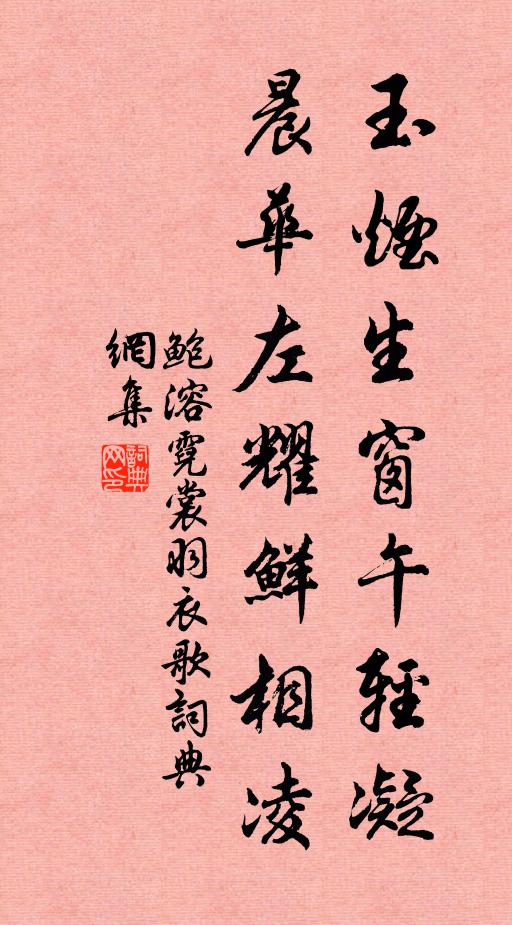 玉煙生窗午輕凝
晨華左耀鮮相凌
鮑溶霓裳羽衣歌詞典
網集
詞典网印